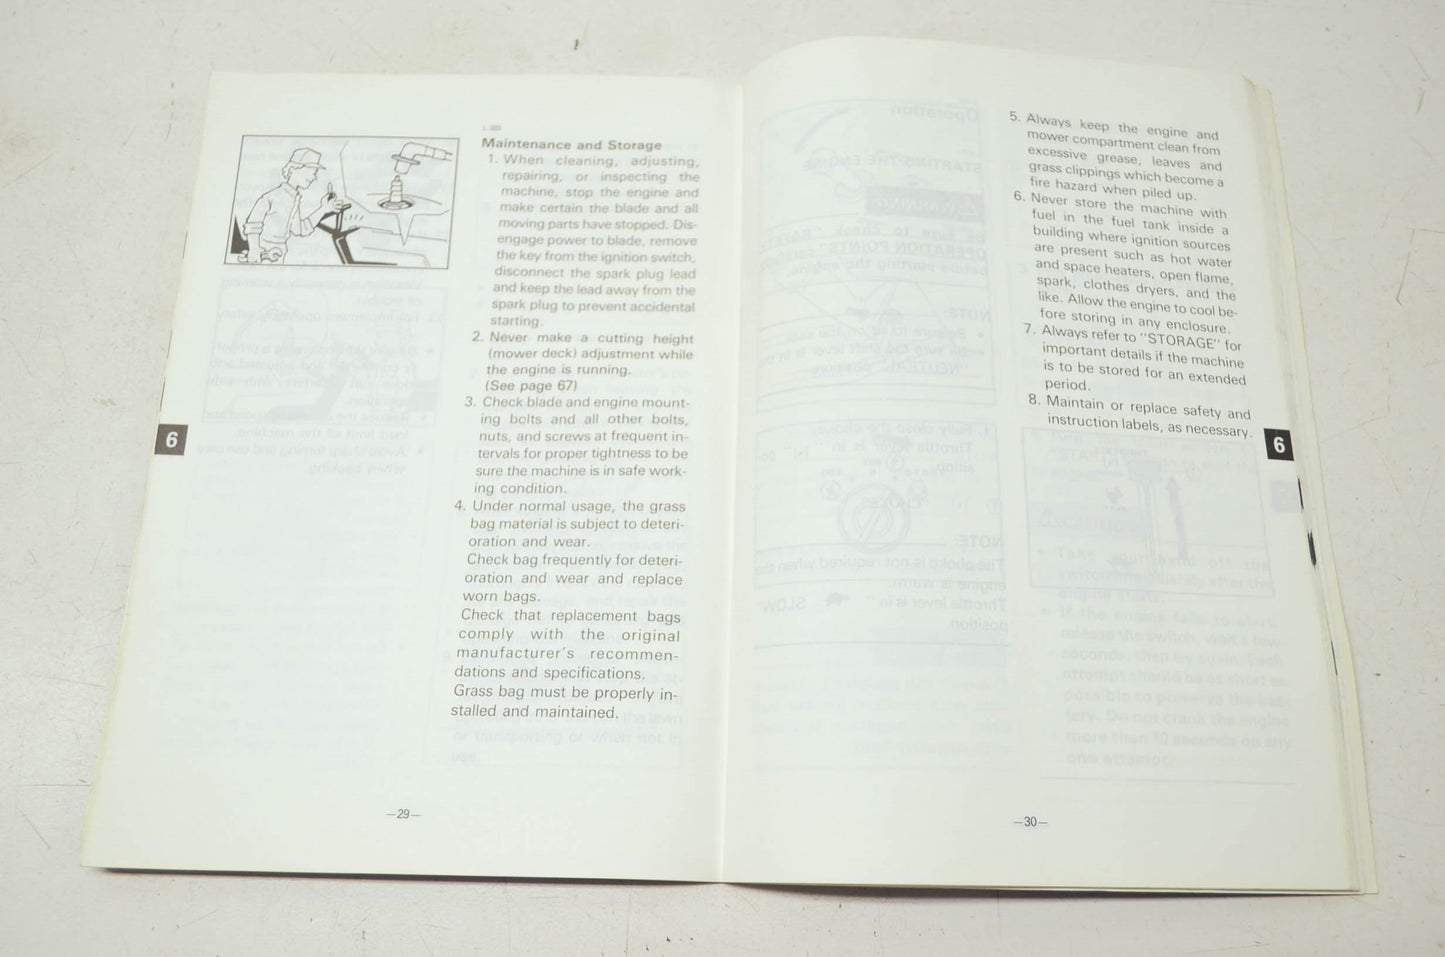 Maintenance and Storage
1. When cleaning, adjusting,
repairing, or inspecting the
machine, stop the engine and
make certain the blade and all
moving parts have stopped. Dis-
engage power to blade, remove
the key from the ignition switch,
disconnect the spark plug lead
and keep the lead away from the
spark plug to prevent accidental
starting.
2. Never make a cutting height
(mower deck) adjustment while
the engine is running.
(See page 67)
3. Check blade and engine mount-
ing bolts and all other bolts,
nuts, and screws at frequent in-
tervals for proper tightness to be
sure the machine is in safe work-
ing condition.
4. Under normal usage, the grass
bag material is subject to deteri-
oration and wear.
Check bag frequently for deteri-
oration and wear and replace
worn bags.
Check that replacement bags
comply with the original
manufacturer's recommen-
dations and specifications.
Grass bag must be properly in-
stalled and maintained.
6
—29—
5. Always keep the engine and
mower compartment clean from
excessive grease, leaves and
grass clippings which become a
fire hazard when piled up.
6. Never store the machine with
fuel in the fuel tank inside a
building where ignition sources
are present such as hot water
and space heaters, open flame,
spark, clothes dryers, and the
like. Allow the engine to cool be-
fore storing in any enclosure.
7. Always refer to "STORAGE" for
important details if the machine
is to be stored for an extended
period.
8. Maintain or replace safety and
instruction labels, as necessary.
6
—30—